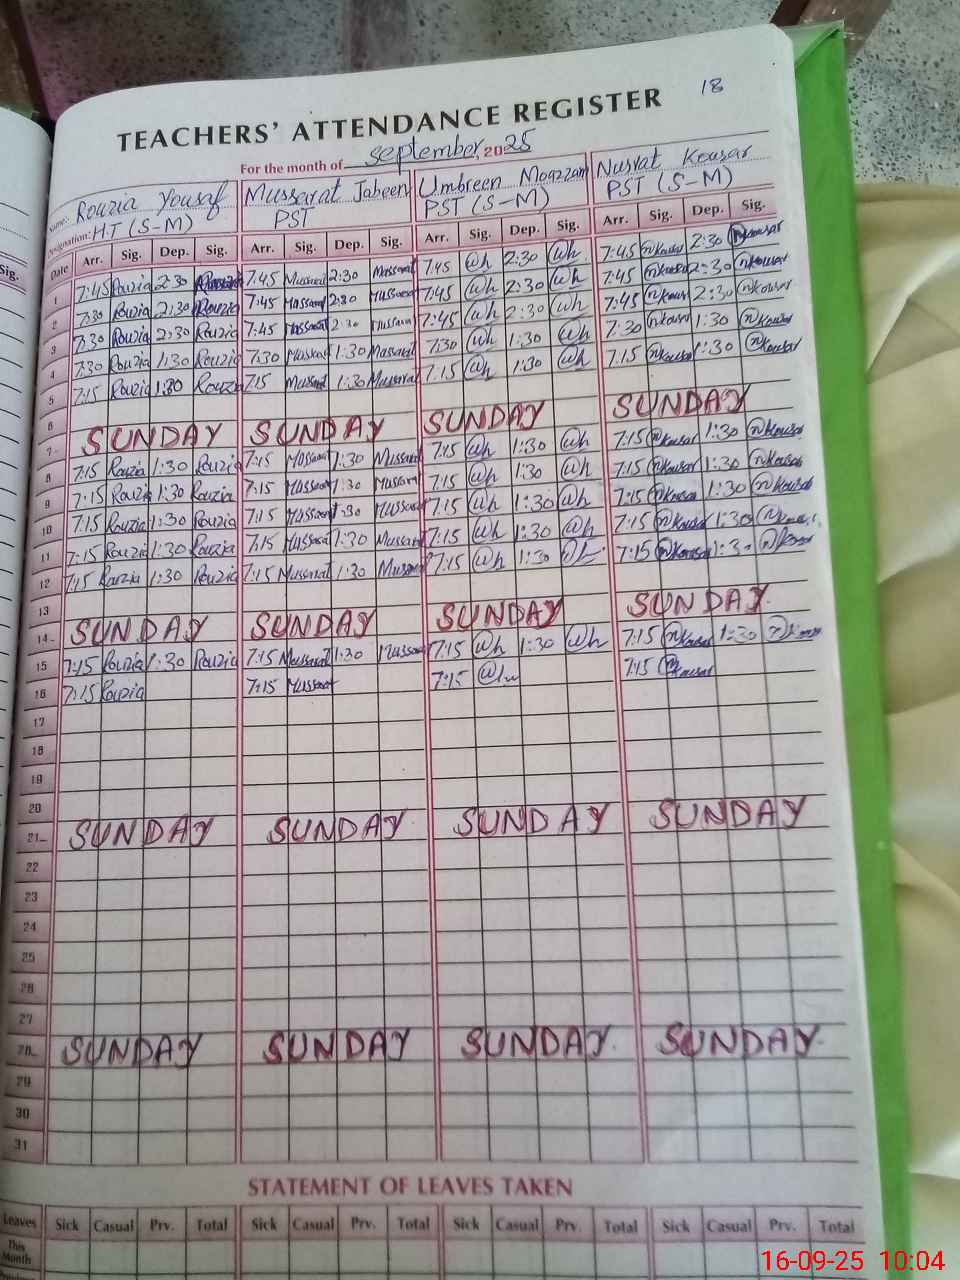 18
TEACHERS' ATTENDANCE REGISTER
For the month of september, 2025
Name:- Rouzia Yousaf Mussarat Jabeen Umbreen Moazzam Nusrat Kousar
Designation: H.T (S-M) PST PST (S-M) PST (S-M)
Sig. Date Arr. Sig. Dep. Sig. Arr. Sig. Dep. Sig. Arr. Sig. Dep. Sig. Arr. Sig. Dep. Sig.
1 7:45 Rouzia 2:30 7:45 Mussarat 2:30 Mussarat 7:45 2:30 7:45 nkousar 2:30 nkousar
2 7:30 Rouzia 2:30 Rouzia 7:45 Mussarat 2:30 Mussarat 7:45 2:30 7:45 nkousar 2:30 nkousar
3 7:30 Rouzia 2:30 Rouzia 7:45 Mussarat 2:30 Mussarat 7:45 2:30 7:45 nkousar 2:30 nkousar
4 7:30 Rouzia 1:30 Rouzia 7:30 Mussarat 1:30 Mussarat 7:30 1:30 7:30 nkousar 1:30 nkousar
5 7:15 Rouzia 1:30 Rouzia 7:15 Mussarat 1:30 Mussarat 7:15 1:30 7:15 nkousar 1:30 nkousar
6
7- SUNDAY SUNDAY SUNDAY SUNDAY
8 7:15 Rouzia 1:30 Rouzia 7:15 Mussarat 1:30 Mussarat 7:15 1:30 7:15 nkousar 1:30 nkousar
9 7:15 Rouzia 1:30 Rouzia 7:15 Mussarat 1:30 Mussarat 7:15 1:30 7:15 nkousar 1:30 nkousar
10 7:15 Rouzia 1:30 Rouzia 7:15 Mussarat 1:30 Mussarat 7:15 1:30 7:15 nkousar 1:30 nkousar
11 7:15 Rouzia 1:30 Rouzia 7:15 Mussarat 1:30 Mussarat 7:15 1:30 7:15 nkousar 1:30
12 7:15 Rouzia 1:30 Rouzia 7:15 Mussarat 1:30 Mussarat 7:15 1:30 7:15 nkousar 1:30
13
14- SUNDAY SUNDAY SUNDAY SUNDAY
15 7:15 Rouzia 1:30 Rouzia 7:15 Mussarat 1:30 Mussarat 7:15 1:30 7:15 nkousar 1:30
16 7:15 Rouzia 7:15 Mussarat 7:15 7:15 nkousar
17
18
19
20
21- SUNDAY SUNDAY SUNDAY SUNDAY
22
23
24
25
26
27
28- SUNDAY SUNDAY SUNDAY SUNDAY
29
30
31
STATEMENT OF LEAVES TAKEN
Leaves Sick Casual Prv. Total Sick Casual Prv. Total Sick Casual Prv. Total Sick Casual Prv. Total
This Month
16-09-25 10:04